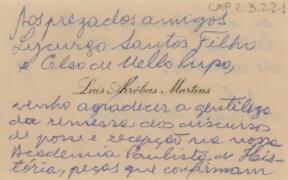 CMP 2.3.22-1
Aos prezados amigos
Lycurgo Santos Filho
e Celso de Mello Pupo,
Luis Arrôbas Martins
venho agradecer a gentileza
da remessa dos discursos
de posse e recepção na nossa
Academia Paulista de His-
tória, peças que confirmam